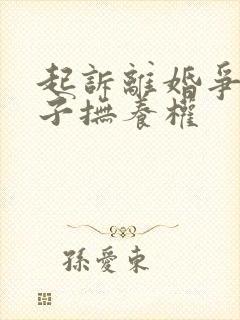 起訴離婚爭
子撫養權
孫愛東